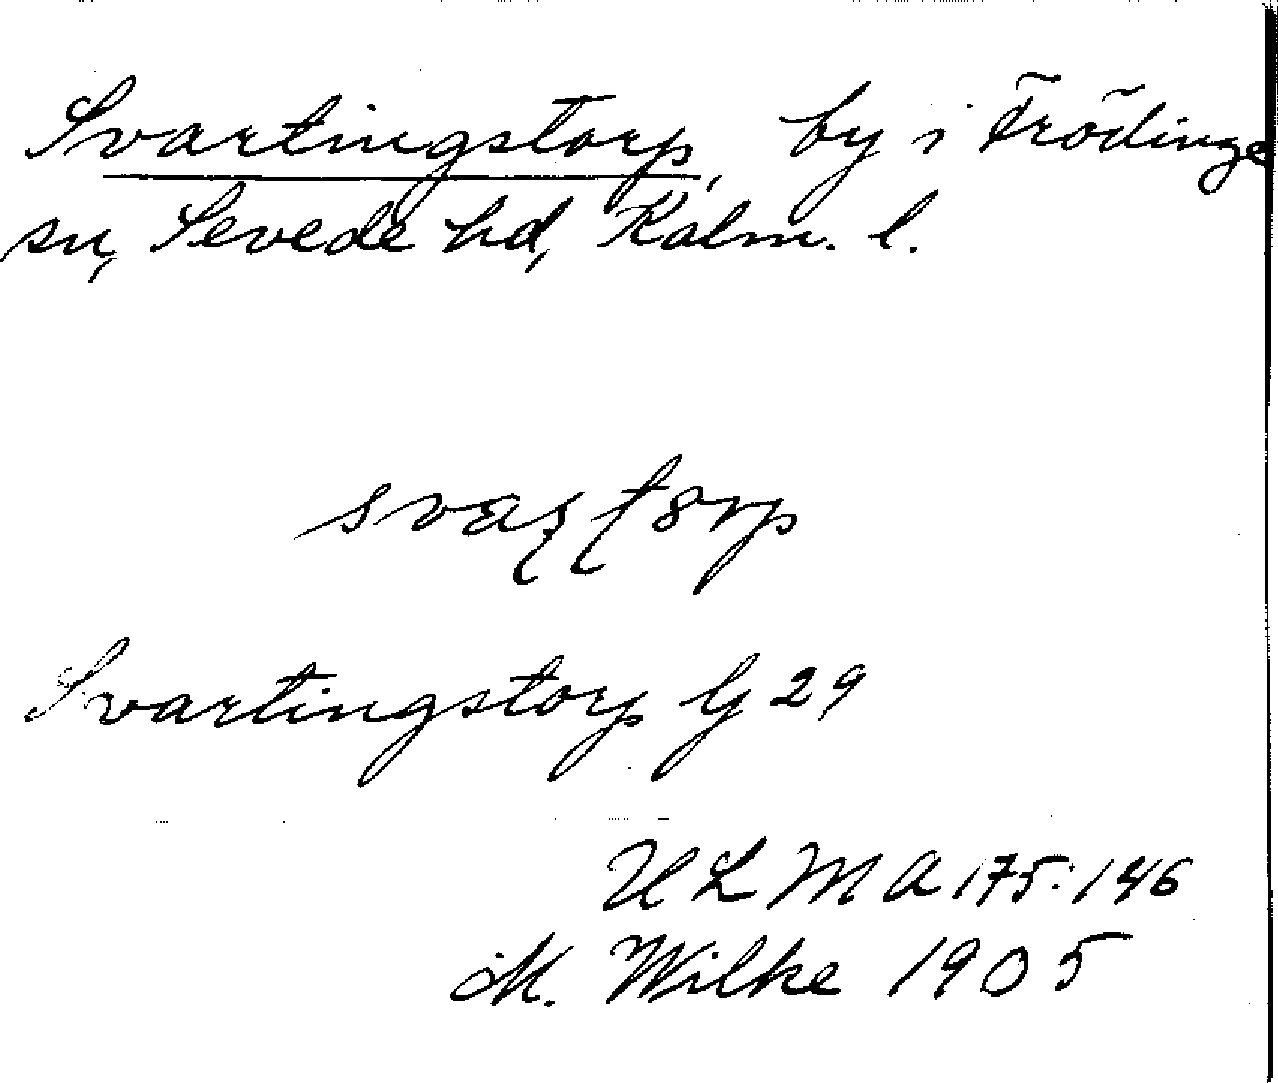 Svartingstorp, by i Frödinge
sn, Sevede hd, Kalm. l.
Svartingstorp Gj 29
ULMA 175:146
M. Wilke 1905